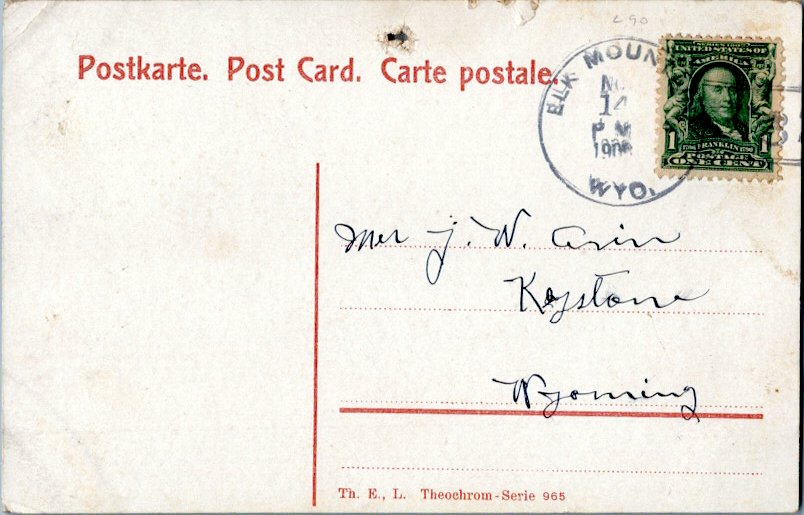 L 90
Postkarte. Post Card. Carte postale.
ELK MOUN
NO
14
P M
WYO.
SERIES 1902
UNITED STATES OF
AMERICA
1706 FRANKLIN 1790
1 POSTAGE 1
ONE CENT
J. W.
Keystone
Wyoming
Th. E., L. Theochrom-Serie 965